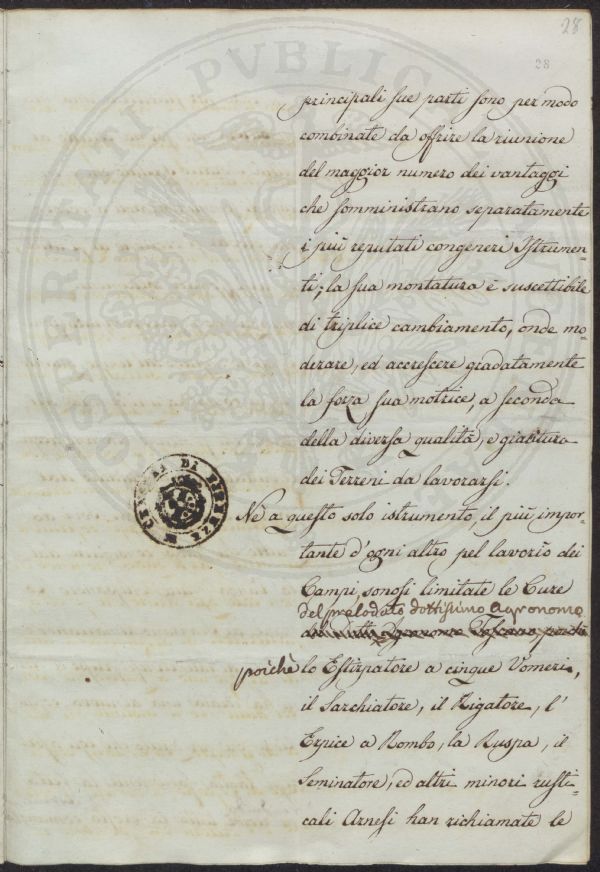 28
28
principali sue parti sono per modo
combinate da offrire la riunione
del maggior numero dei vantaggi
che somministrano separatamente
i più reputati congeneri Istrumen-
ti; la sua montatura è suscettibile
di triplice cambiamento, onde mo-
derare, ed accrescere gradatamente
la forza sua motrice, a seconda
della diversa qualità, e giacitura
dei Terreni da lavorarsi.
Nè a questo solo istrumento, il più impor-
tante d'ogni altro pel lavorio dei
Campi, sonosi limitate le Cure
del prelodato dottissimo Agronomo
Agronomo Toscano
poichè lo Estirpatore a cinque Vomeri,
il Sarchiatore, il Rigatore, l'
Erpice a Rombo, la Ruspa, il
Seminatore, ed altri minori rusti-
cali Arnesi han richiamate le
PVBLIC
PROSPERITATI